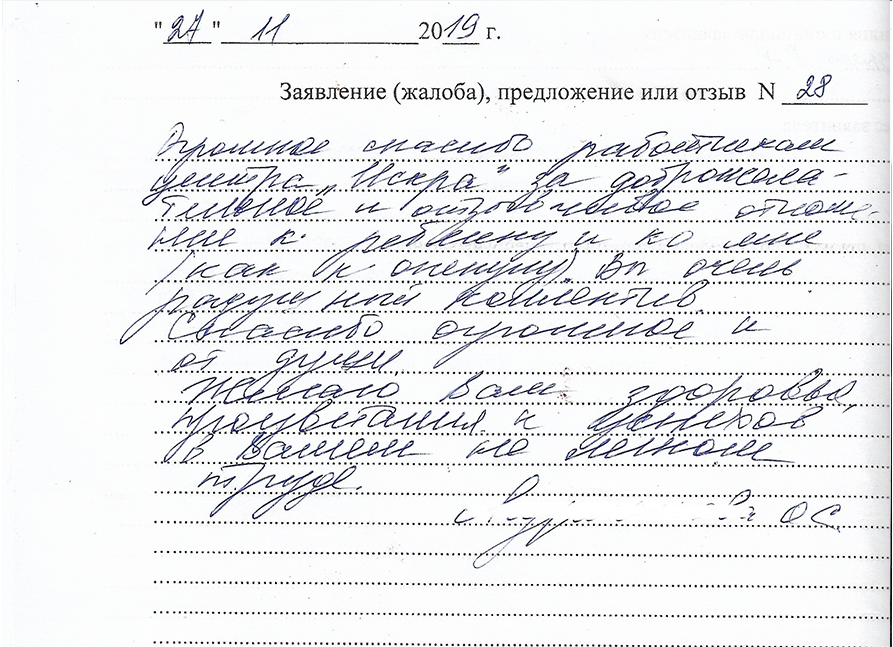 "27" 11 2019 г.
Заявление (жалоба), предложение или отзыв N 28
Огромное спасибо работникам
центра „Искра" за доброжела-
тельное и отзывчивое отноше-
ние к ребенку и ко мне
(как к опекуну). Вы очень
радушный коллектив.
Спасибо огромное и
от души
Желаю Вам здоровья,
процветания и успехов
в Вашем не легком
труде.
О С.